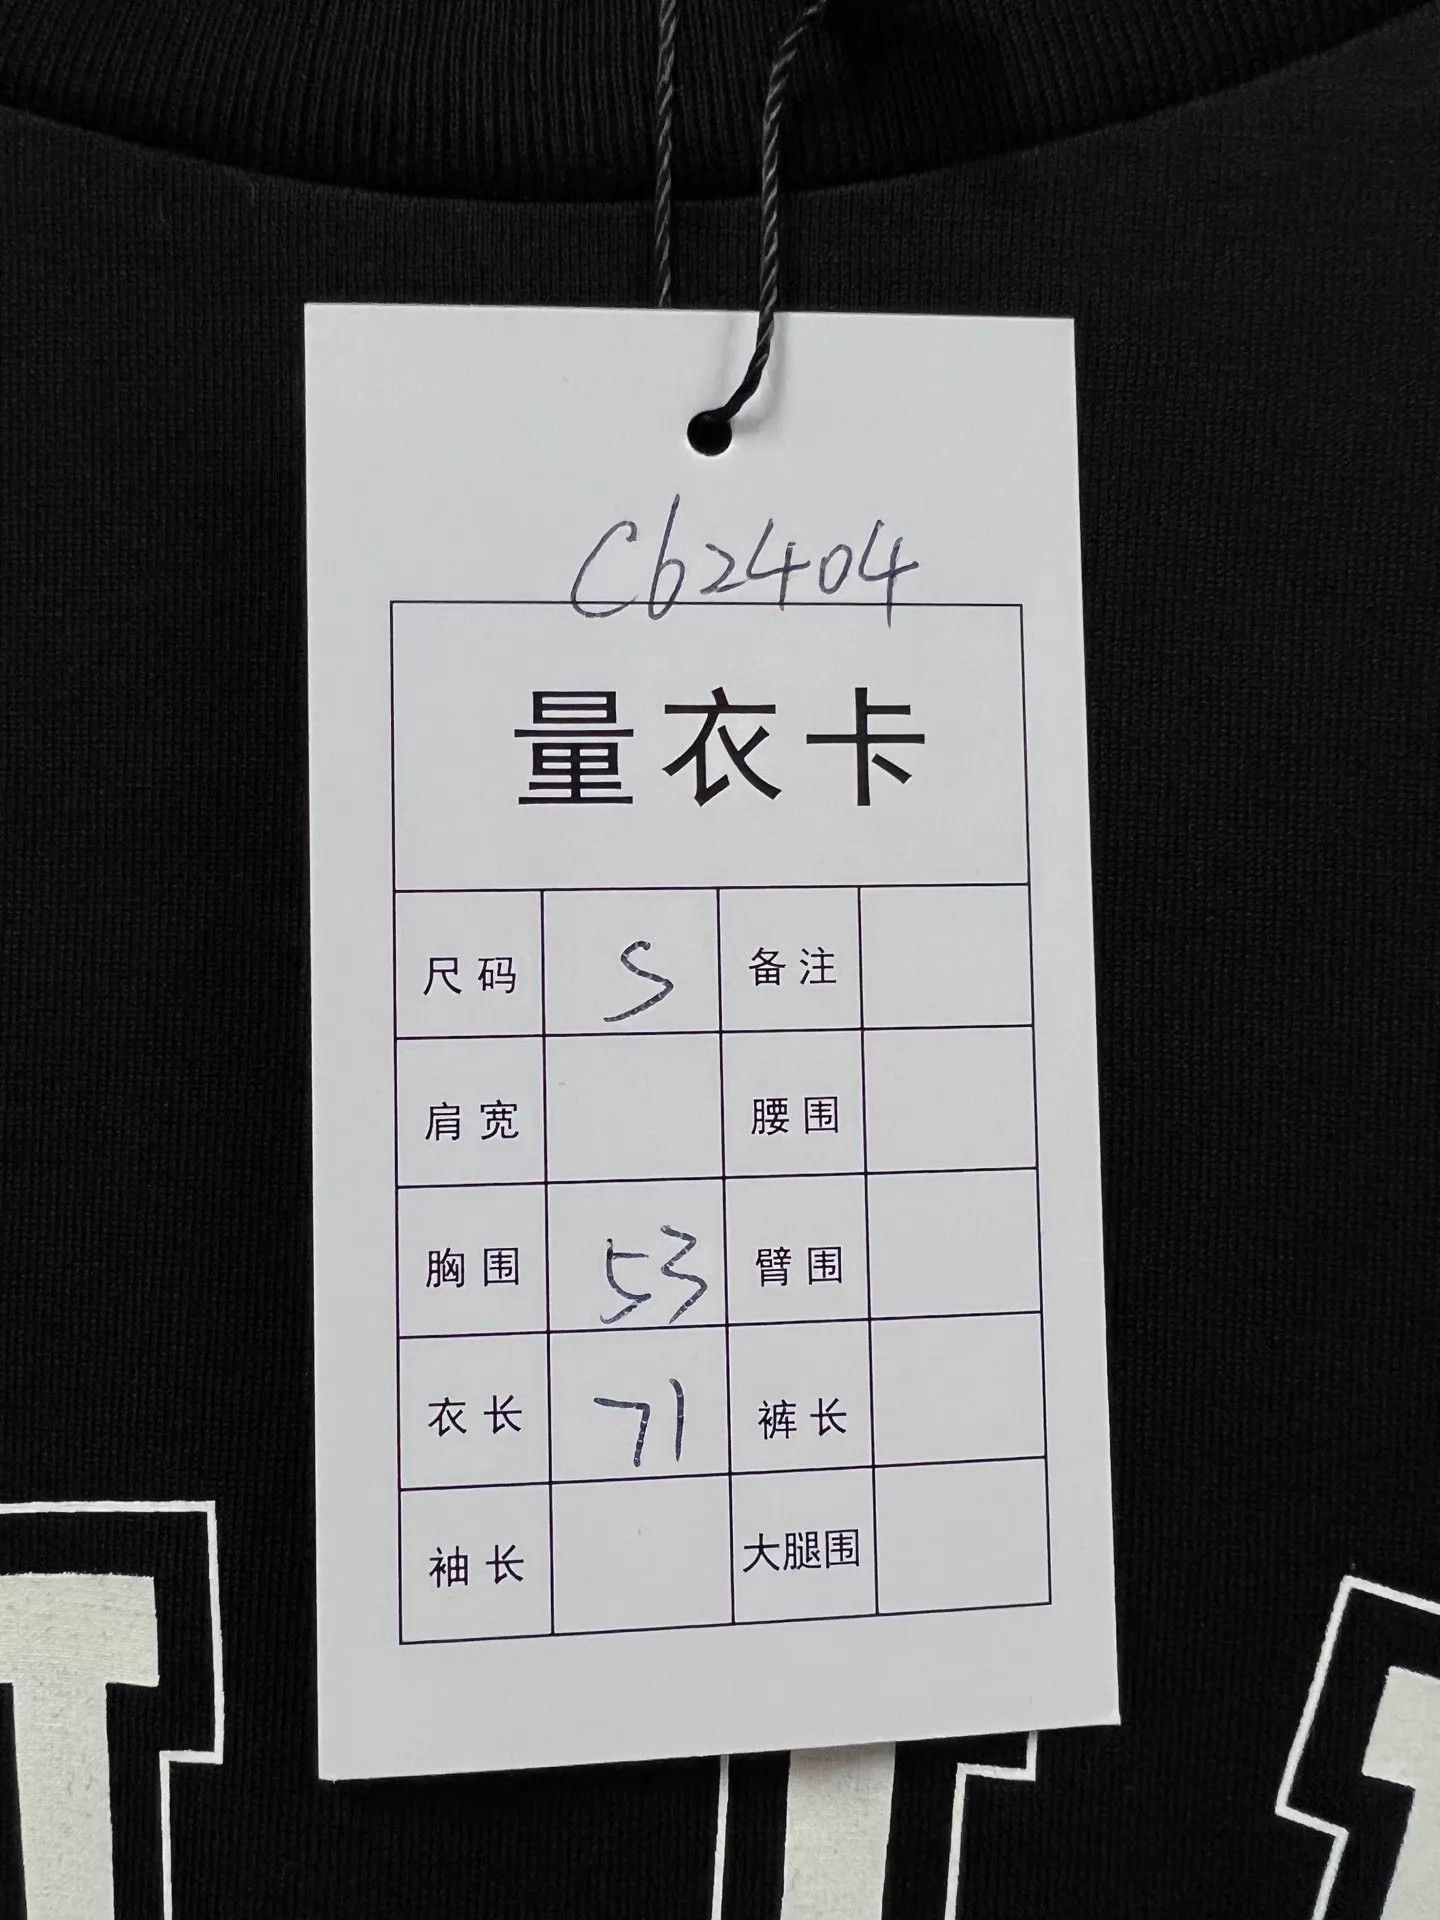 C62404
量衣卡
尺码 S 备注
肩宽 腰围
胸围 53 臂围
衣长 71 裤长
袖长 大腿围